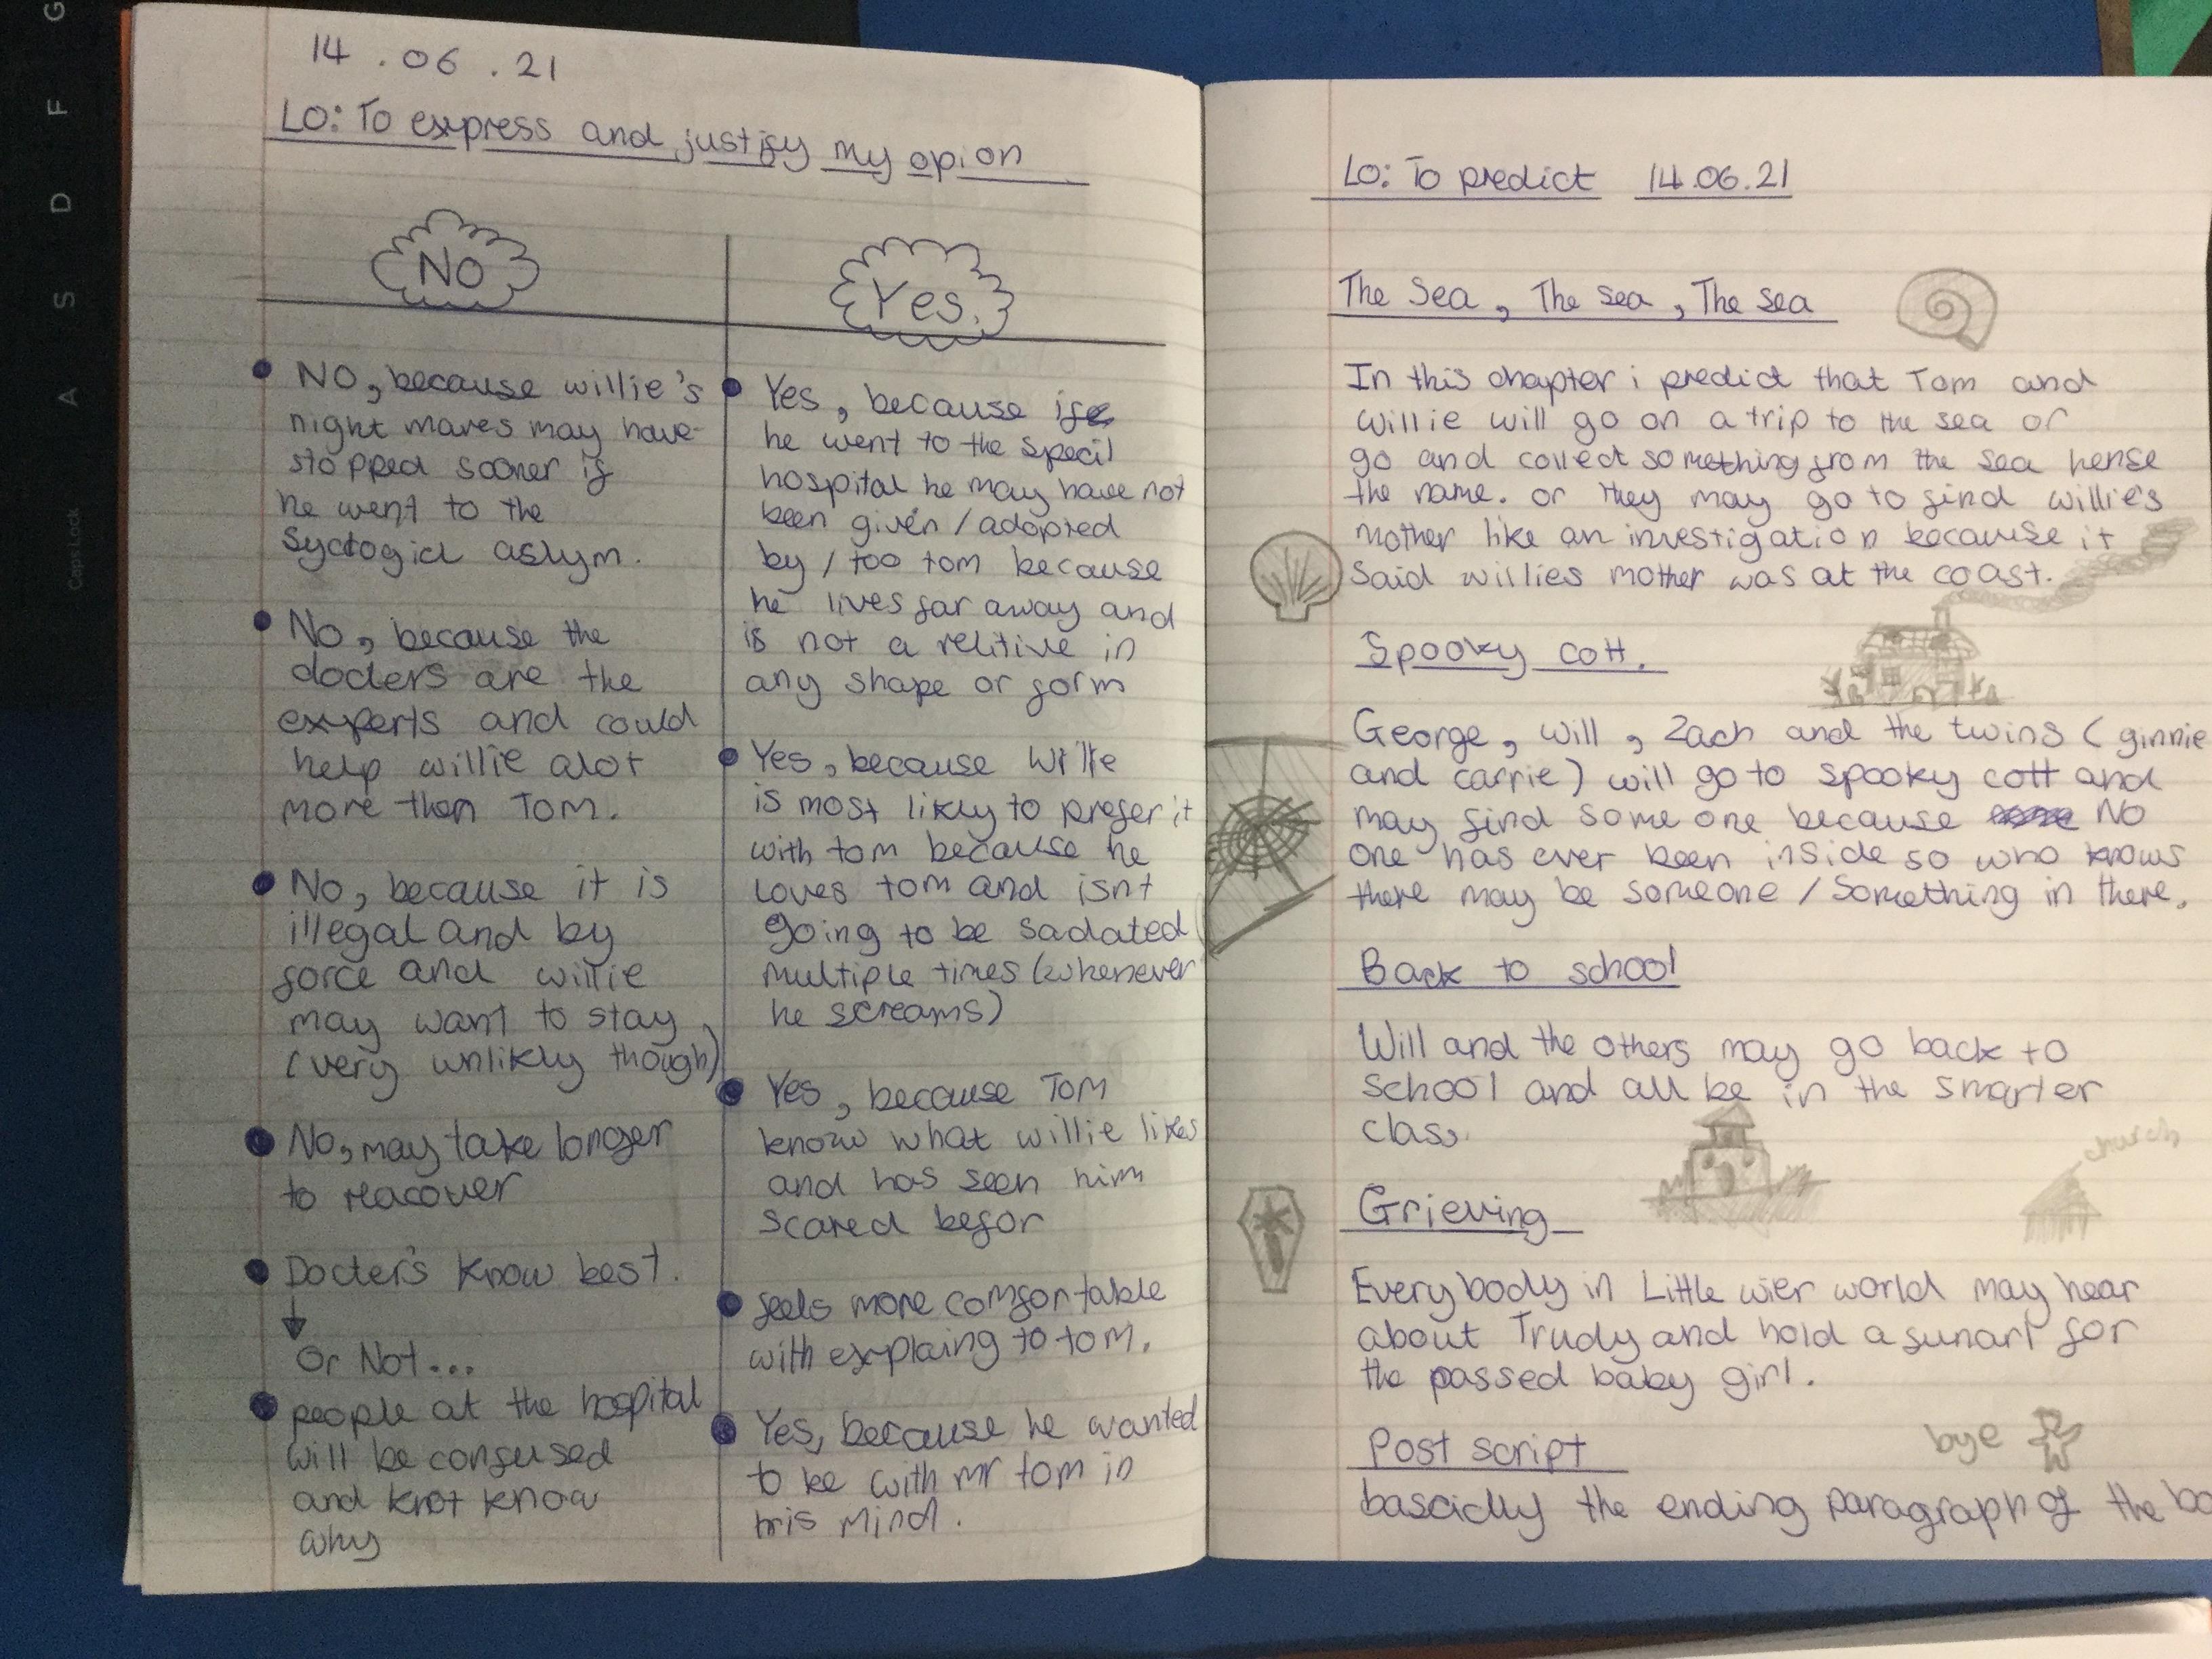 G
F
D
S
A
Caps Lock
14.06.21
LO: To express and justify my opion
No
NO, because willie's
night mares may have
stopped sooner if
he went to the
Syctogicl aslym.
No, because the
docters are the
experts and could
help willie alot
more then Tom.
No, because it is
illegal and by
force and willie
may want to stay
(very unlikly though)
No, may take longer
to reacover
Docter's know best.
Or Not...
people at the hospital
will be confused
and knot know
why
Yes.
Yes, because if
he went to the specil
hospital he may have not
been given/adopted
by/too tom because
he lives far away and
is not a relitive in
any shape or form
Yes, because Willie
is most likely to prefer it
with tom because he
loves tom and isnt
going to be sadated
multiple times (whenever
he screams)
Yes, because Tom
know what willie likes
and has seen him
scared befor
feels more comfortable
with explaing to tom.
Yes, because he wanted
to be with mr tom in
his Mind.
LO: To predict 14.06.21
The Sea, The sea, The sea
In this chapter i predict that Tom and
willie will go on a trip to the sea or
go and collect something from the sea hense
the name. or they may go to find willie's
mother like an investigation because it
said willies mother was at the coast.
Spooky cott.
George, will, Zach and the twins (ginnie
and carrie) will go to spooky cott and
may find some one because No
one has ever been inside so who knows
there may be someone/something in there.
Back to school
Will and the others may go back to
school and all be in the smarter
class
church
Grieving
Everybody in Little wier world may hear
about Trudy and hold a funarl for
the passed baby girl.
bye
Post script
bascidly the ending paragraph of the bo